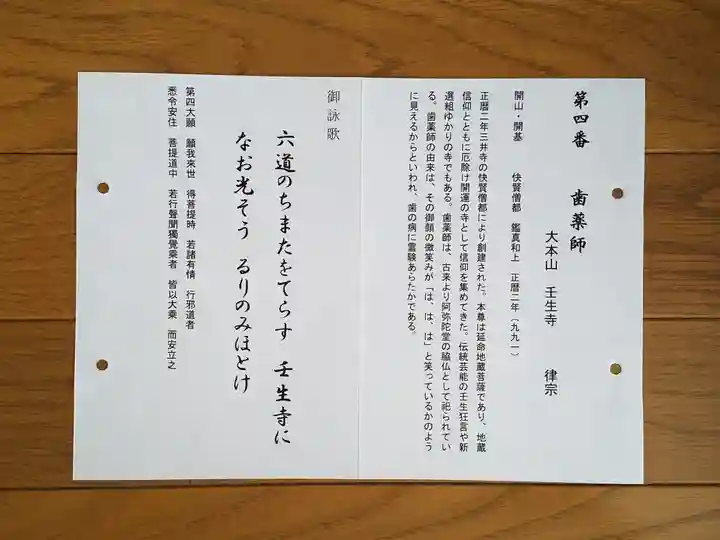 第四番 歯薬師
大本山 壬生寺 律宗
開山・開基 快賢僧都 鑑真和上 正暦二年(九九一)
正暦二年三井寺の快賢僧都により創建された。本尊は延命地蔵菩薩であり、地蔵
信仰とともに厄除け開運の寺として信仰を集めてきた。伝統芸能の壬生狂言や新
選組ゆかりの寺でもある。歯薬師は、古来より阿弥陀堂の脇仏として祀られてい
る。歯薬師の由来は、その御顔の微笑みが「は、は、は」と笑っているかのよう
に見えるからといわれ、歯の病に霊験あらたかである。
御詠歌
六道のちまたをてらす 壬生寺に
なお光そう るりのみほとけ
第四大願 願我来世 得菩提時 若諸有情 行邪道者
悉令安住 菩提道中 若行聲聞獨覺乗者 皆以大乗 而安立之